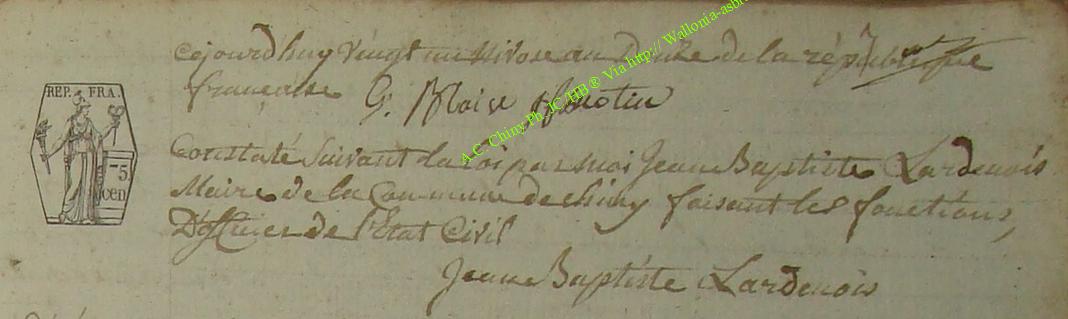 cejourd'huy vingt un nivose an Douze de la république
françoise G. Blaise
A.C. Chiny Ph. JC HB® Via http:// Wallonia-asbl
REP. FRA.
75
cen
Constaté suivant la loi par moi Jean Baptiste Lardenois
Maire de la Commune de chiny faisant les fonctions,
D'officier de l'Etat Civil
Jean Baptiste Lardenois